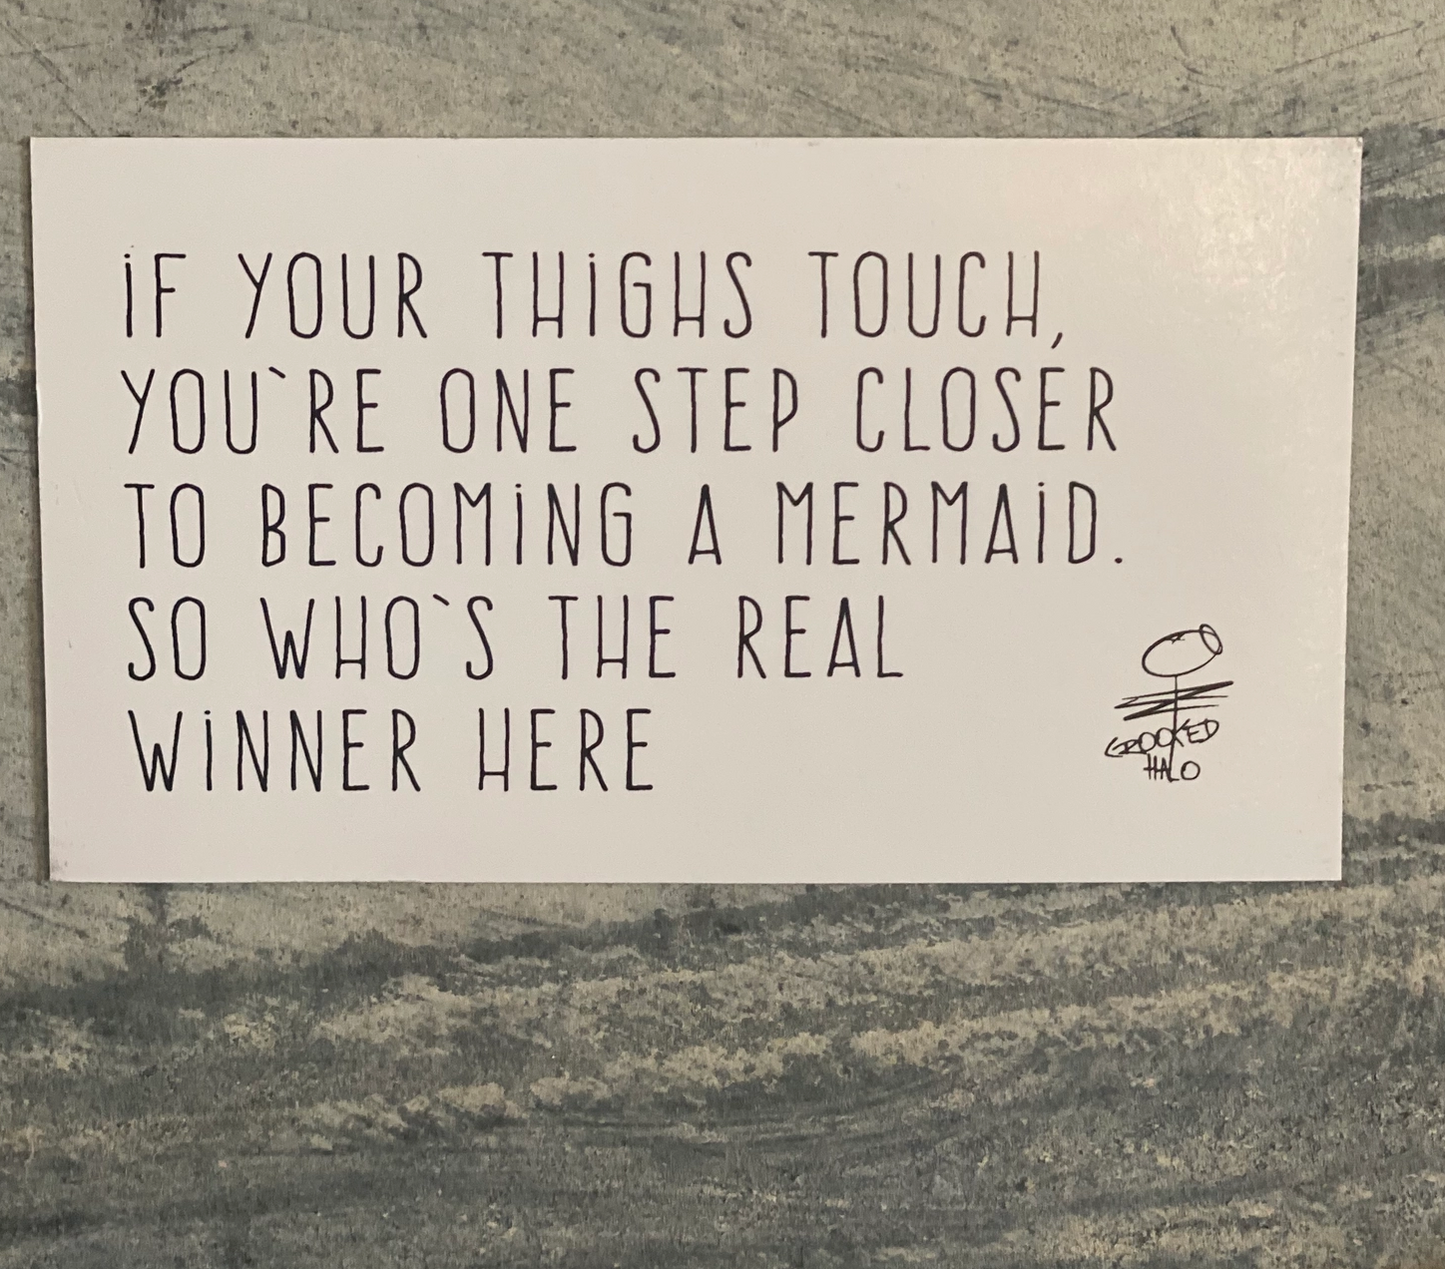 iF YOUR THiGHS TOUCH,
YOU`RE ONE STEP CLOSER
TO BECOMiNG A MERMAiD.
SO WHO`S THE REAL
WiNNER HERE
CROOKED
HALO